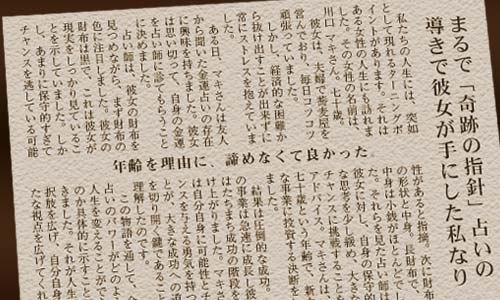 まるで「奇跡の指針」占いの
導きで彼女が手にした私なり
私たちの人生には、突如
として現れるターニングポ
イントがあります。それは
ある女性の人生にも訪れま
した。その女性の名前は、
川口 マキさん。七十歳。
彼女は、夫婦で蕎麦屋を
営んでおり、毎日コツコツ
頑張っていました。
しかし、経済的な困難か
ら抜け出すことが出来ずに
常にストレスを抱えていま
した。
ある日、マキさんは友人
から聞いた金運占いの存在
に興味を持ちました。彼女
は思い切って、自身の金運
を占い師に診てもらうこと
に決めました。
占い師は、彼女の財布を
見つめながら、まず財布の
色に注目しました。彼女の
財布は黒で、これは彼女が
現実をしっかり見ているこ
とを示していました。しか
し、あまりに保守的すぎて
チャンスを逃している可能
年齢を理由に、諦めなくて良かった。
性があると指摘。次に財布
の形状と中身。長財布で、
中身は小銭がほとんどでし
た。それらを見た占い師
彼女に対し、自身の保守的
な思考を少し緩め、大き
チャンスに挑戦すること
アドバイス。マキさんは
七十歳という年齢で、新
な事業に投資する決断を
結果は圧倒的な成功。
の事業は急速に成長し彼
はたちまち成功の階段
け上がりました。マキさ
は自分自身に可能性とチ
ンスを与える勇気を持つ
とが、大きな成功への道
を切り開く鍵であるこ
理解したのです。
この物語を通して、
占いのパワーがどのよ
人生を変えることがで
のか具体的に示すこと
きました。それが人生
択肢を広げ、自分自身
たな視点を広げてくれ